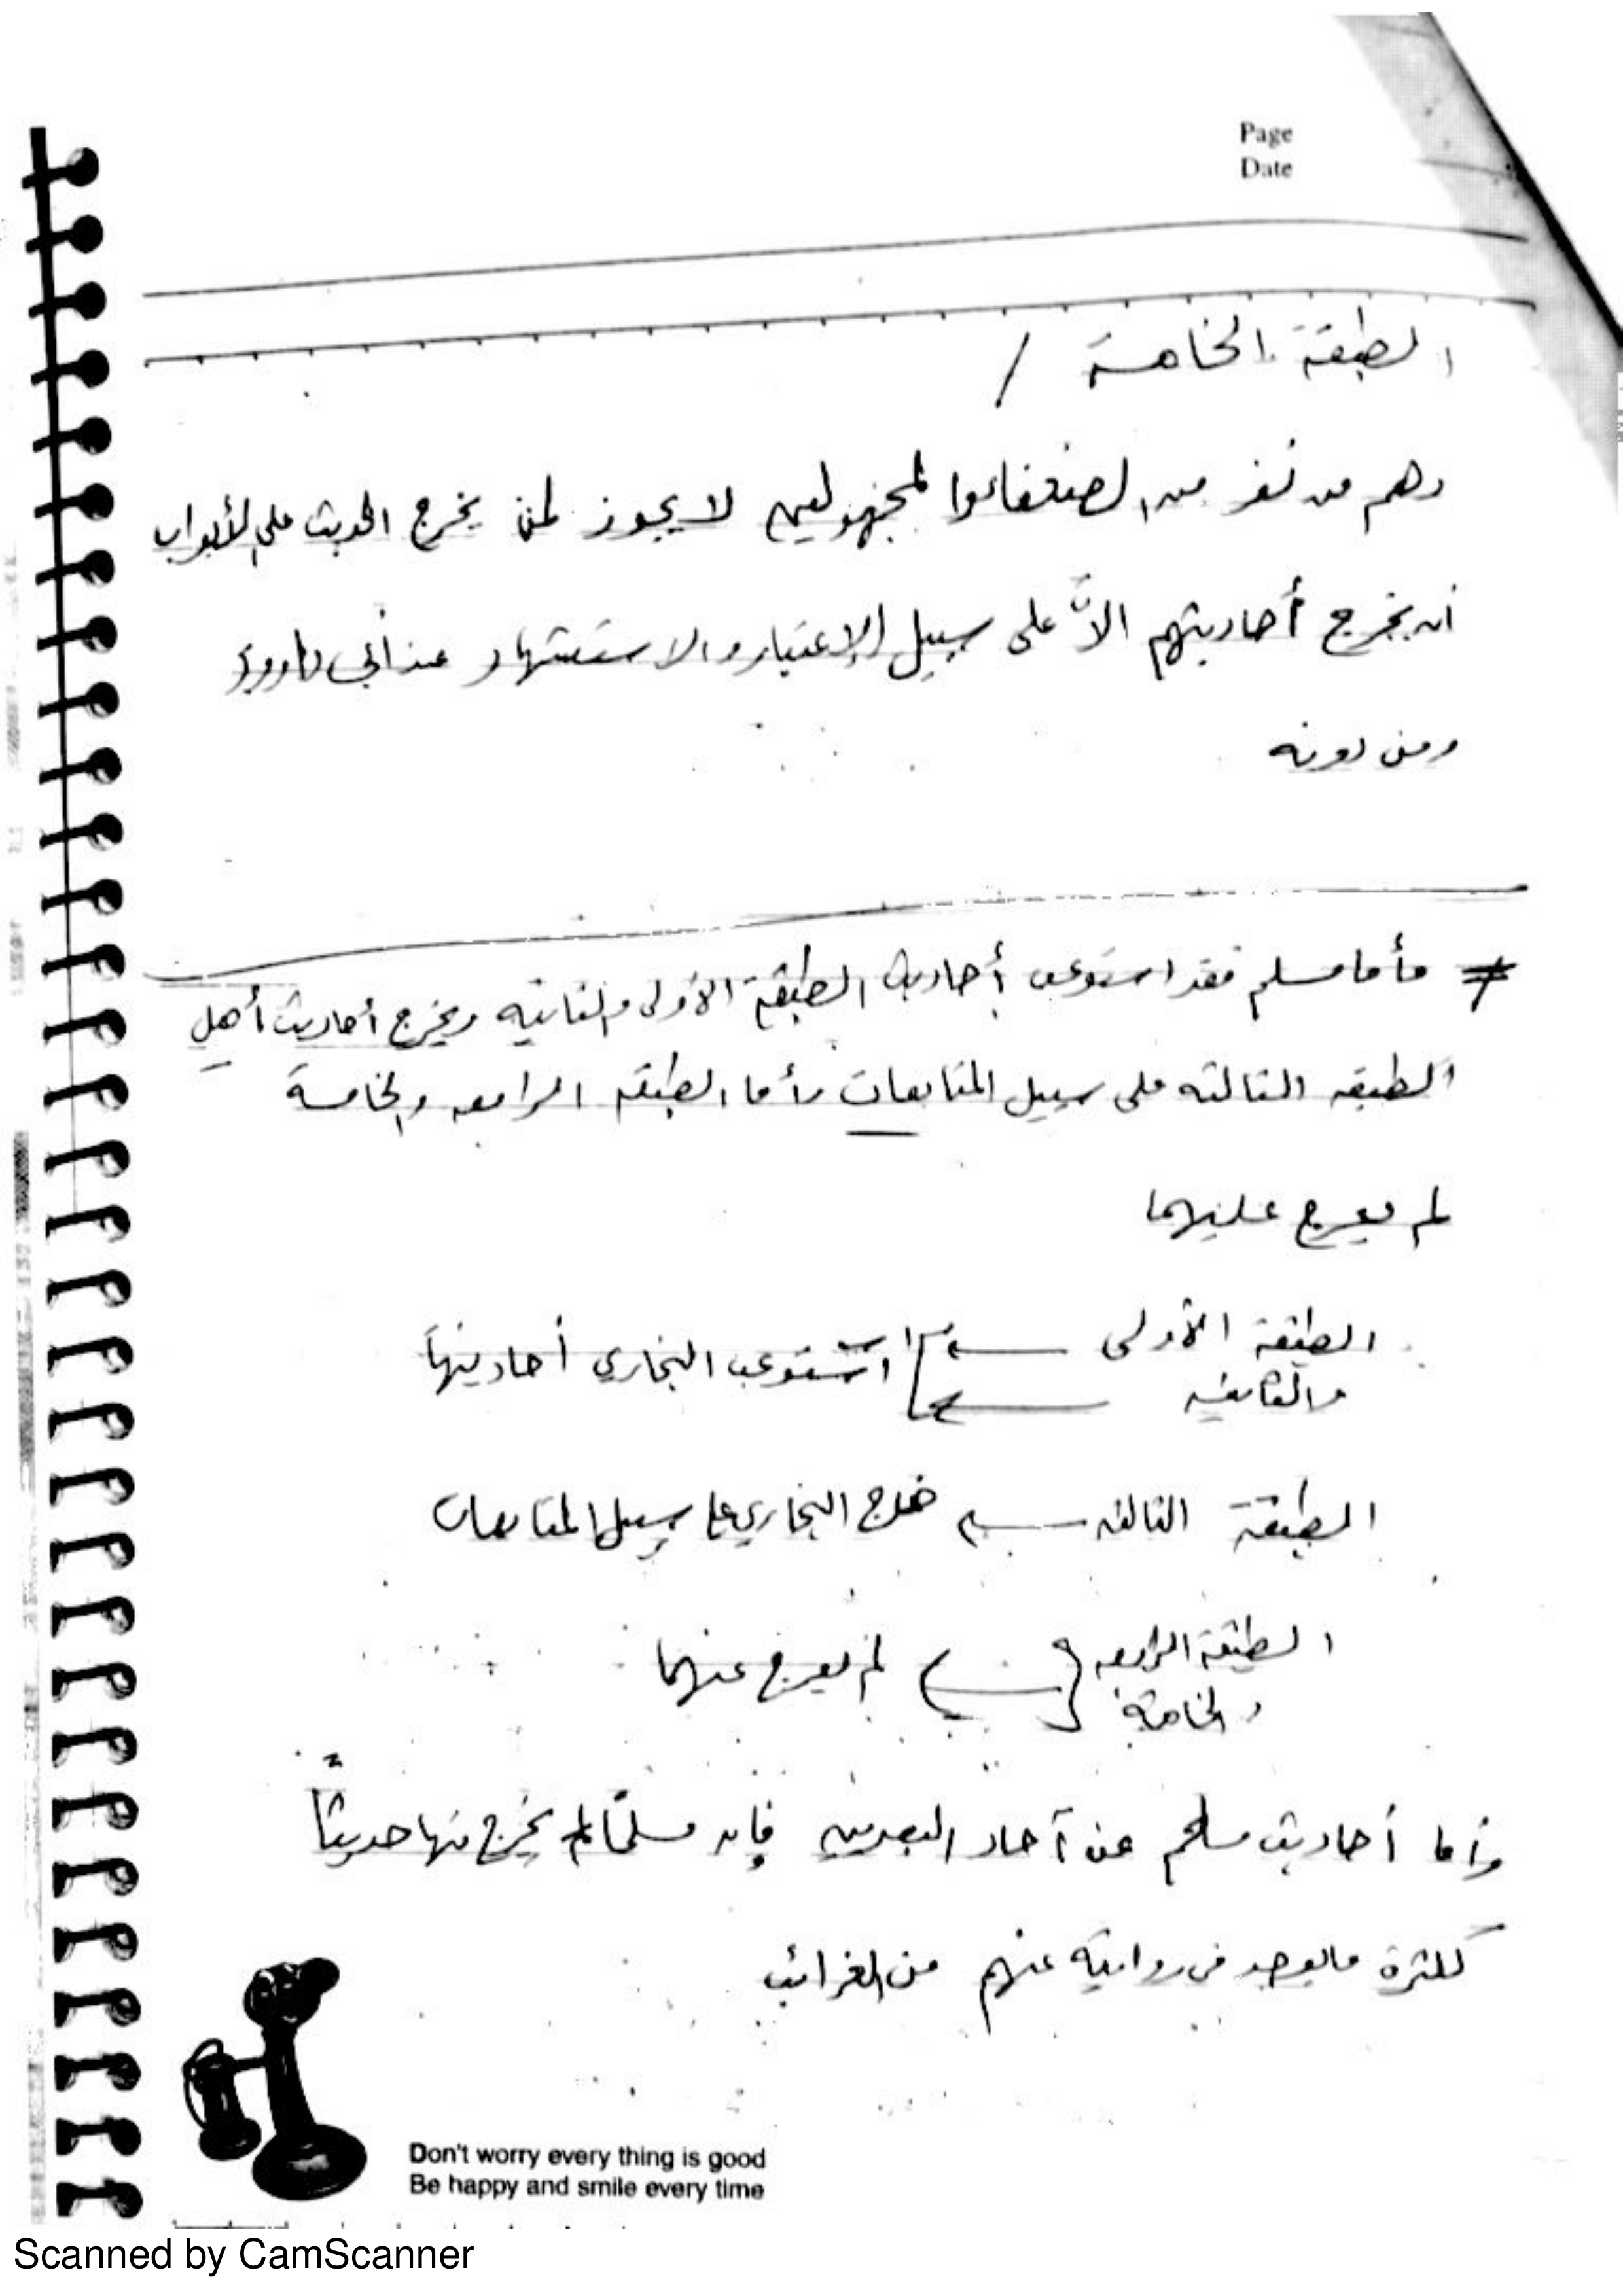 Page
Date
الطبقة الخامسة /
وهم من نفر من الضعفاء والمجهولين لا يجوز لمن يخرج الحديث على الأبواب
أن يخرج أحاديثهم الاّ على سبيل الإعتبار والاستشهاد عند أبي داوود
ومن دونه
≠ وأما مسلم فقد استوعب أحاديث الطبقة الأولى والثانية ويخرج أحاديث أهل
الطبقه الثالثه على سبيل المتابعات وأما الطبقه الرابعه والخامسة
لم يعرج عليهما
الطبقة الأولى
والثانيه
استوعب البخاري أحاديثها
الطبقة الثالثه خرج البخاري على سبيل المتابعات
الطبقة الرابعه
والخامسة
لم يعرج عنهما
وأما أحاديث مسلم عن آحاد البصريين فإن مسلمًا لم يخرج منها حديثاً
لكثرة ما يوجد في روايته عنهم من الغرائب
Don't worry every thing is good
Be happy and smile every time
Scanned by CamScanner